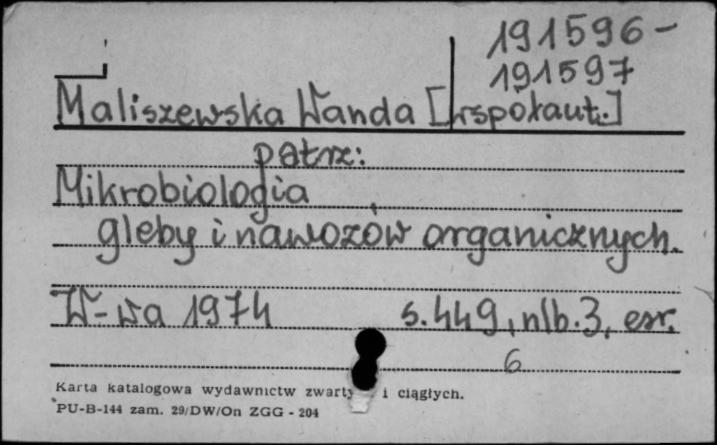 191596-
191597
Maliszewska Wanda [współaut.]
patrz:
Mikrobiologia
gleby i nawozów organicznych.
W-wa 1974 s. 449, nlb. 3, err.
6
Karta katalogowa wydawnictw zwarty i ciągłych.
PU-B-144 zam. 29/DW/On ZGG - 204